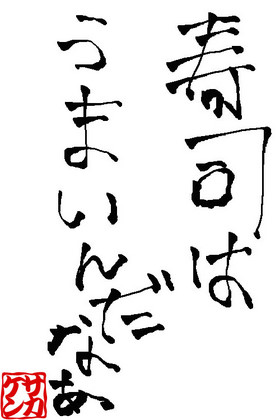 寿司は
うまいんだなあ
サカケン